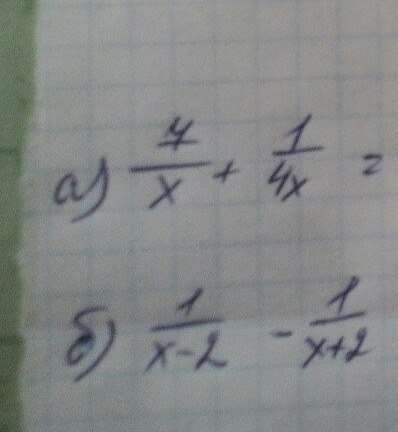 а) 7/x + 1/4x =
б) 1/x-2 - 1/x+2